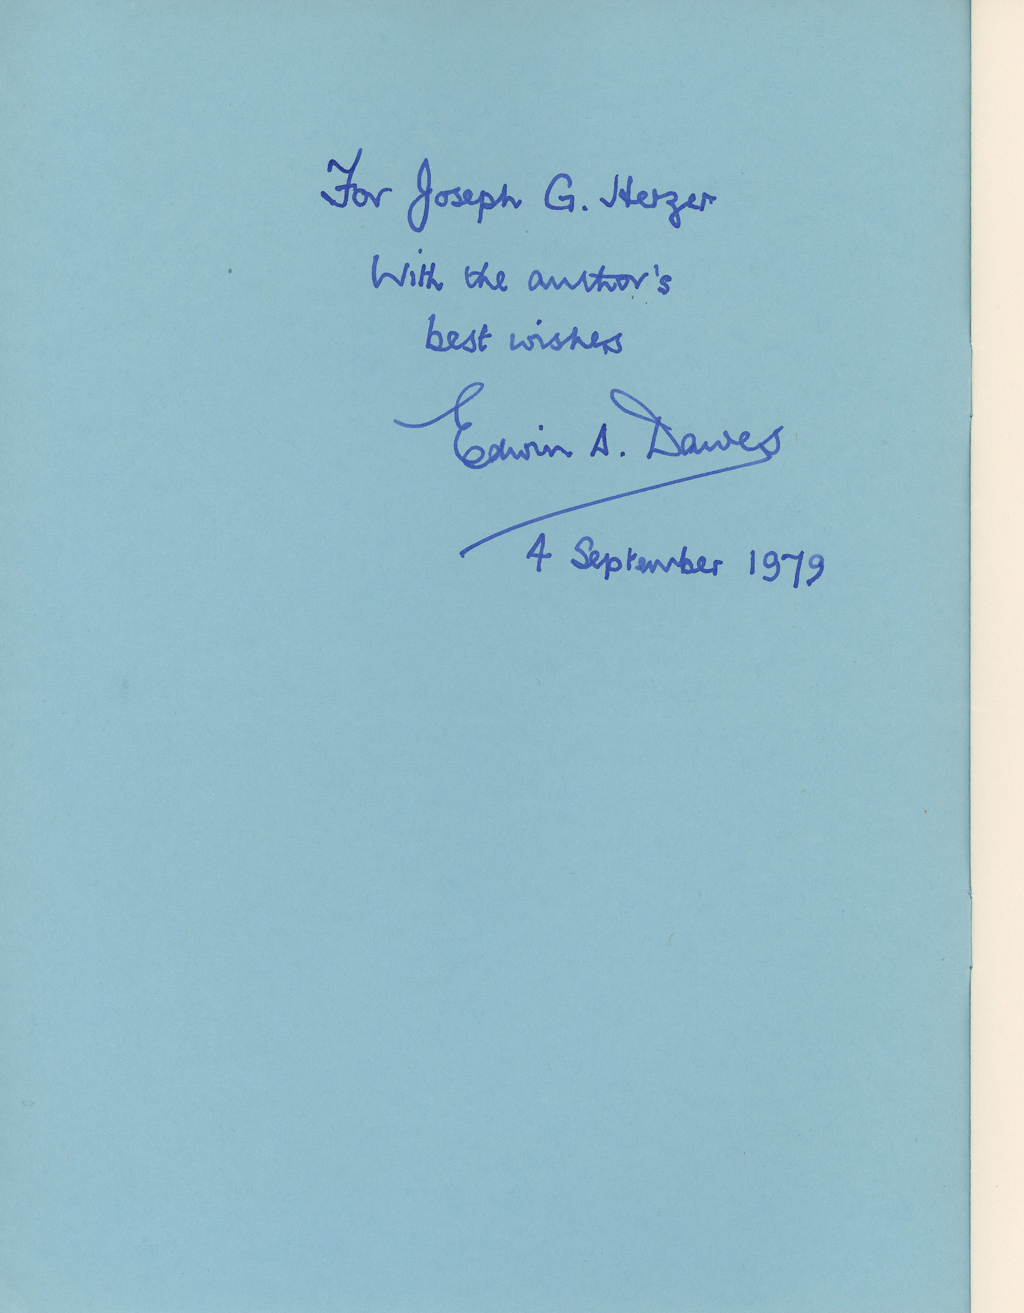 For Joseph G. Herzer
With the author's
best wishes
Edwin A. Dawes
4 September 1979